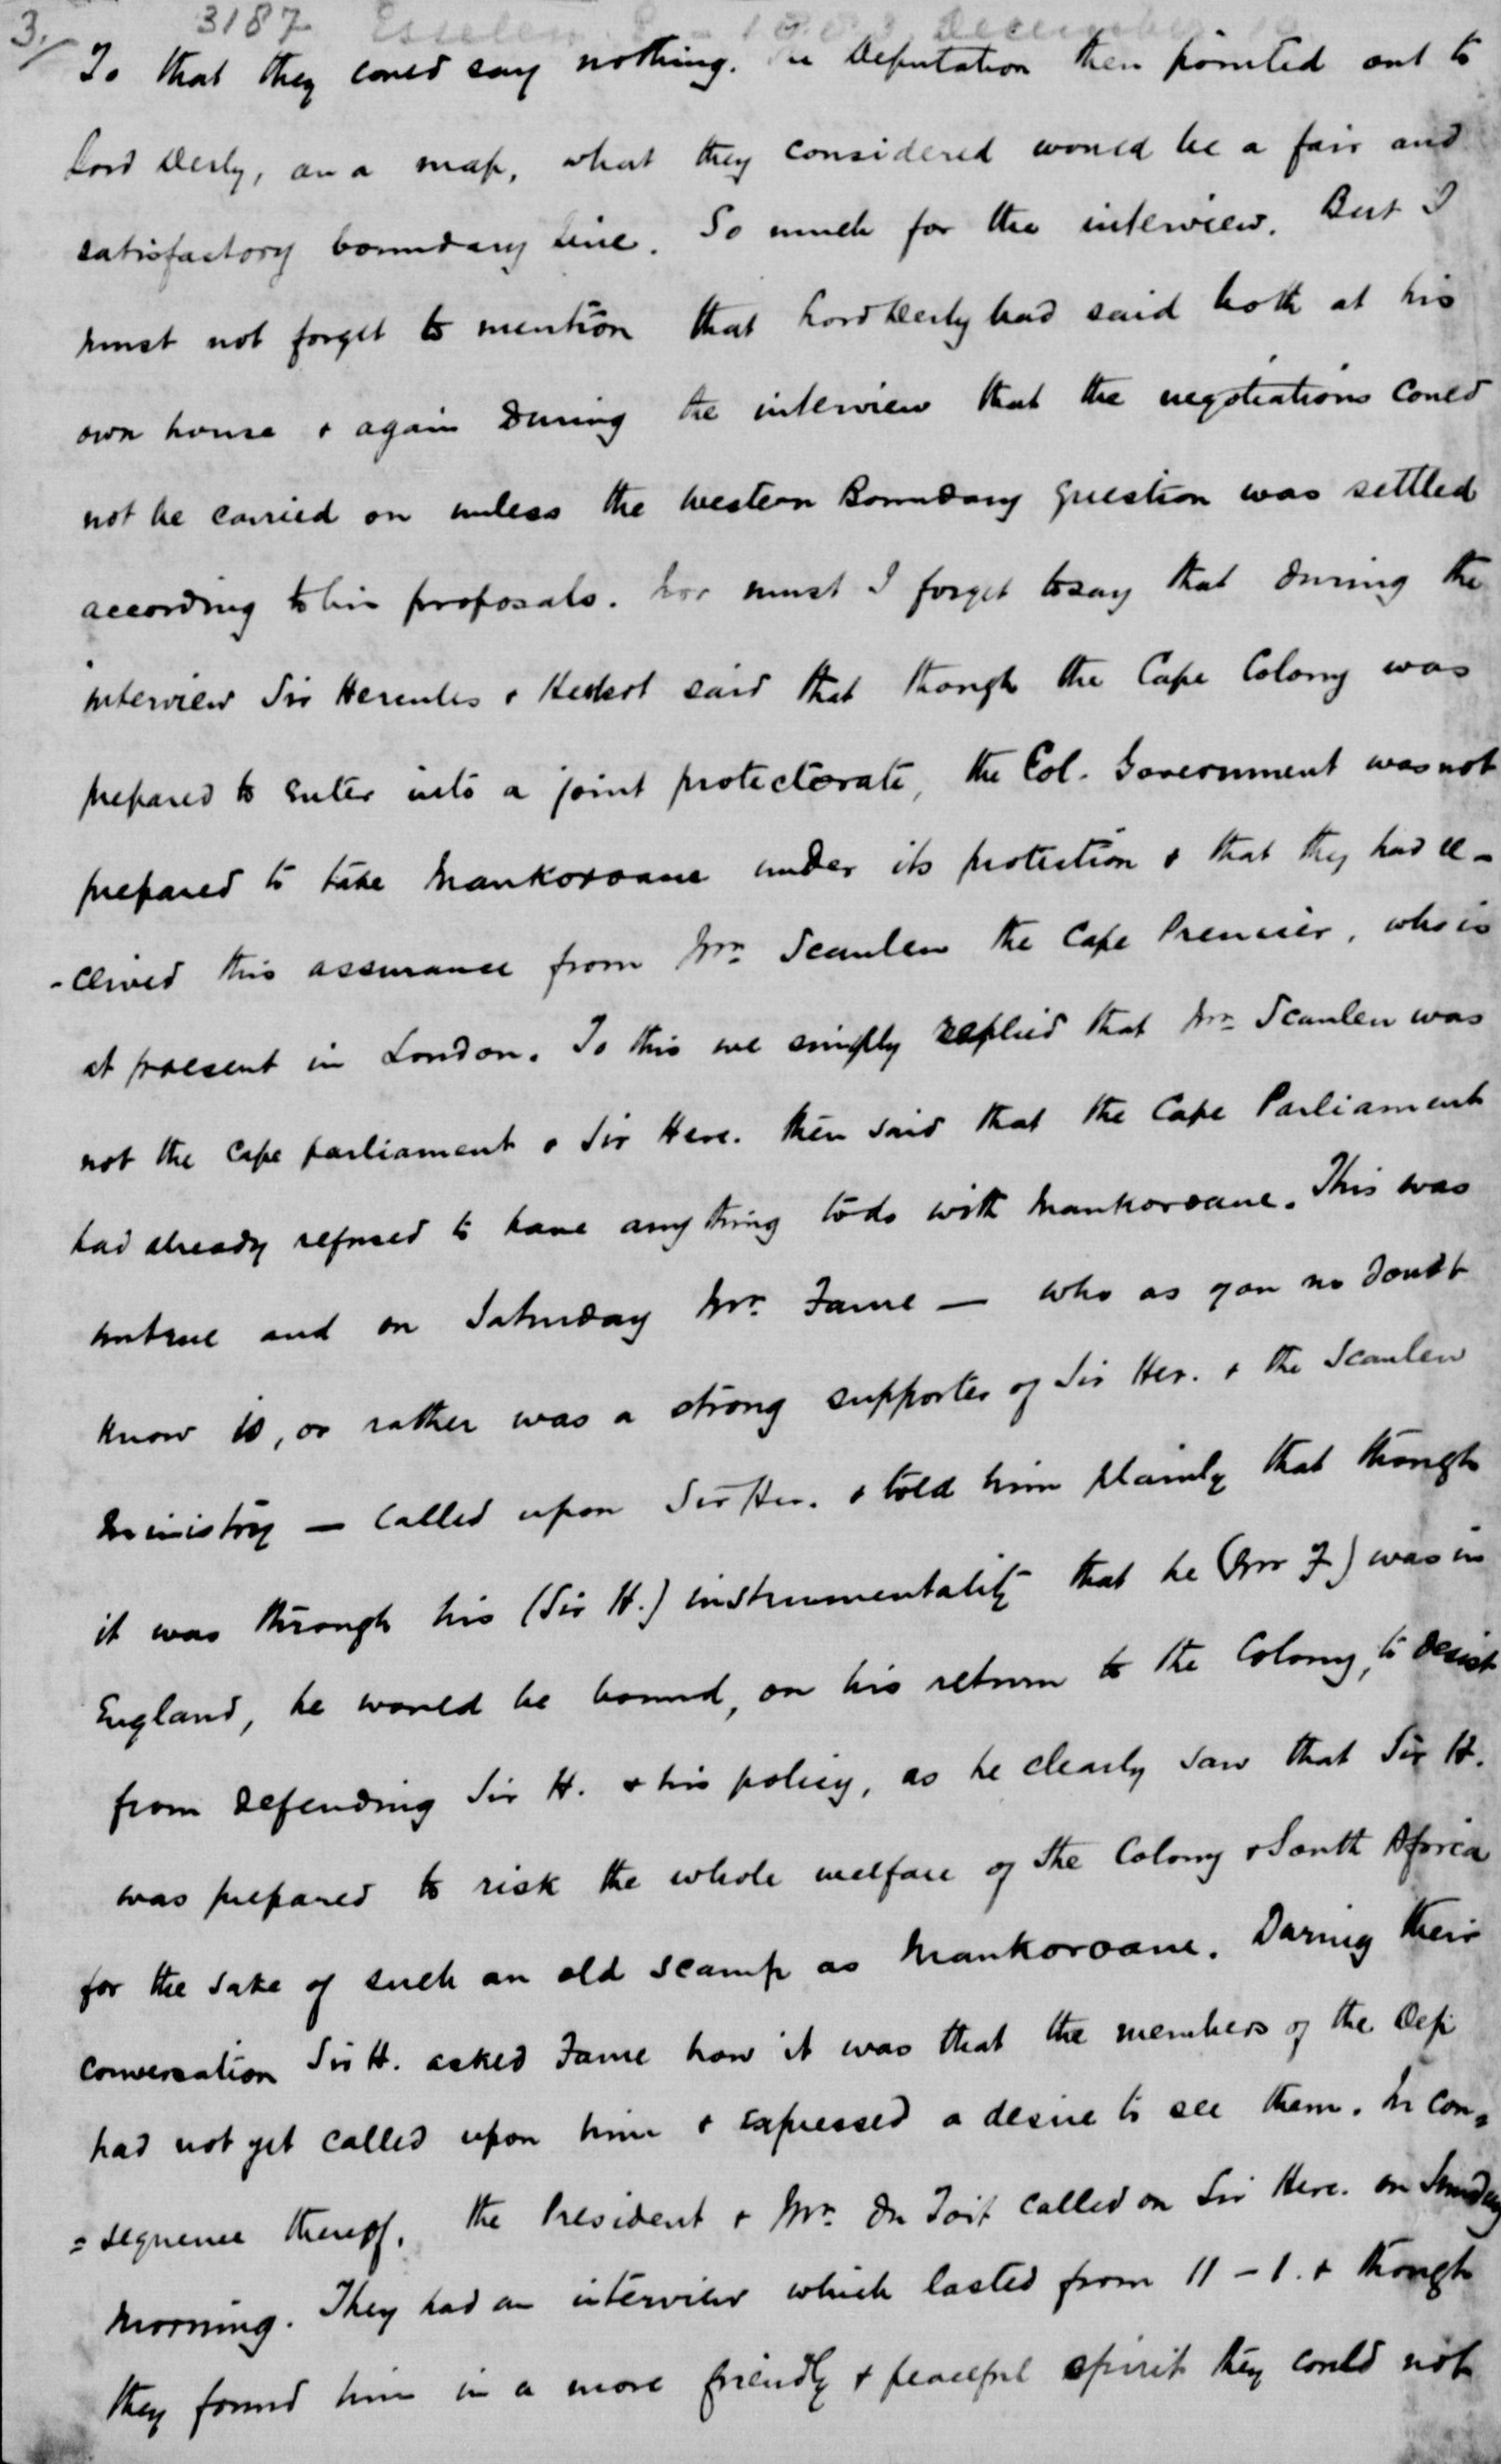 3. 3187 Esselen December
To that they could say nothing. The Deputation then pointed out to
Lord Derby, on a map, what they considered would be a fair and
satisfactory boundary line. So much for the interview. But I
must not forget to mention that Lord Derby had said both at his
own house & again During the interview that the negotiations could
not be carried on unless the Western Boundary question was settled
according to his proposals. Nor must I forget to say that during the
interview Sir Hercules & Herbert said that though the Cape Colony was
prepared to enter into a joint protectorate, the Col. Government was not
prepared to take Mankoroane under its protection & that they had re-
-ceived this assurance from Mr. Scanlen the Cape Premier, who is
at present in London. To this we simply replied that Mr. Scanlen was
not the Cape parliament & Sir Herc. then said that the Cape Parliament
had already refused to have any thing to do with Mankoroane. This was
untrue and on Saturday Mr. Faure — who as you no doubt
know is, or rather was a strong supporter of Sir Her. & the Scanlen
Ministry — called upon Sir Her. & told him plainly that though
it was through his (Sir H.) instrumentality that he (Mr F) was in
England, he would be bound, on his return to the Colony, to desist
from Defending Sir H. & his policy, as he clearly saw that Sir H.
was prepared to risk the whole welfare of the Colony & South Africa
for the sake of such an old scamp as Mankoroane. During their
conversation Sir H. asked Faure how it was that the members of the Dep
had not yet called upon him & expressed a desire to see them. In con=
=sequence thereof, the President & Mr. Du Toit called on Sir Herc. on Sunday
Morning. They had an interview which lasted from 11 - 1. & though
they found him in a more friendly & peaceful spirit they could not